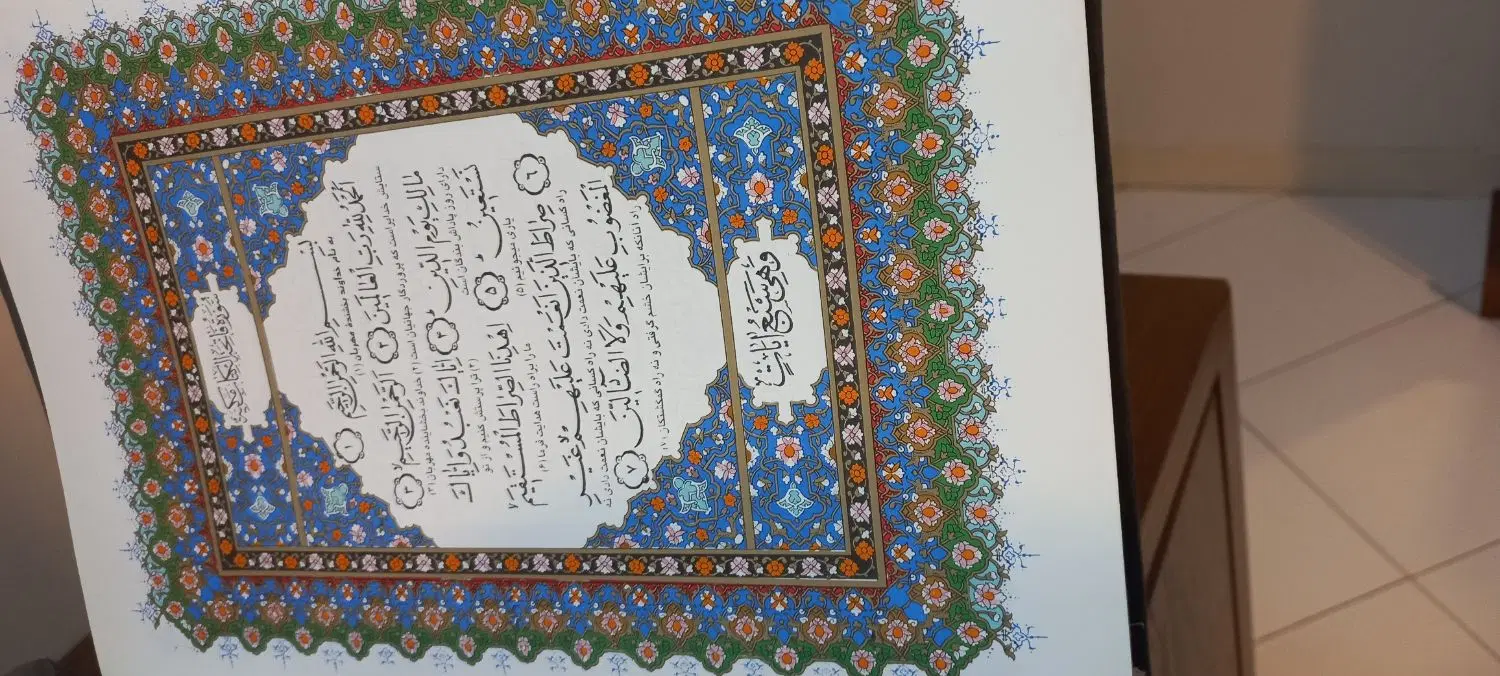 سُورَةُ فَاتِحَةِ الْكِتَابِ
بِسْمِ اللَّهِ الرَّحْمَٰنِ الرَّحِيمِ ﴿۱﴾
به نام خداوند بخشندهٔ مهربان (۱)
اَلْحَمْدُ لِلَّهِ رَبِّ الْعَالَمِينَ ﴿۲﴾ اَلرَّحْمَٰنِ الرَّحِيمِ ﴿۳﴾
ستایش خدایراست که پروردگار جهانیان است (۲) خداوند بخشاینده مهربان (۳)
مَالِكِ يَوْمِ الدِّينِ ﴿۴﴾ إِيَّاكَ نَعْبُدُ وَإِيَّاكَ
دارای روز پاداش بندگان است (۴) ترا پرستش کنیم و از تو
نَسْتَعِينُ ﴿۵﴾ اِهْدِنَا الصِّرَاطَ الْمُسْتَقِيمَ
یاری میجوئیم (۵) ما را براه راست هدایت فرما (۶)
﴿۶﴾ صِرَاطَ الَّذِينَ أَنْعَمْتَ عَلَيْهِمْ غَيْرِ
راه کسانی که بایشان نعمت دادی نه راه کسانی که بایشان نعمت دادی نه
الْمَغْضُوبِ عَلَيْهِمْ وَلَا الضَّالِّينَ ﴿۷﴾
راه آنانکه برایشان خشم گرفتی و نه راه گمگشتگان (۷)
وَهِيَ سَبْعُ آيَاتٍ